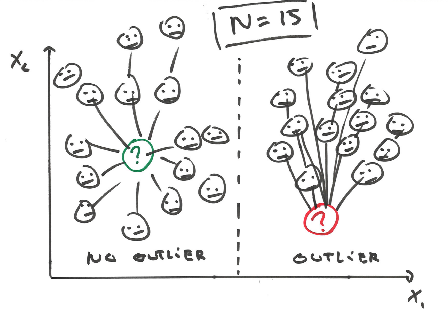 N=15
X₂
?
?
NO OUTLIER
OUTLIER
X₁